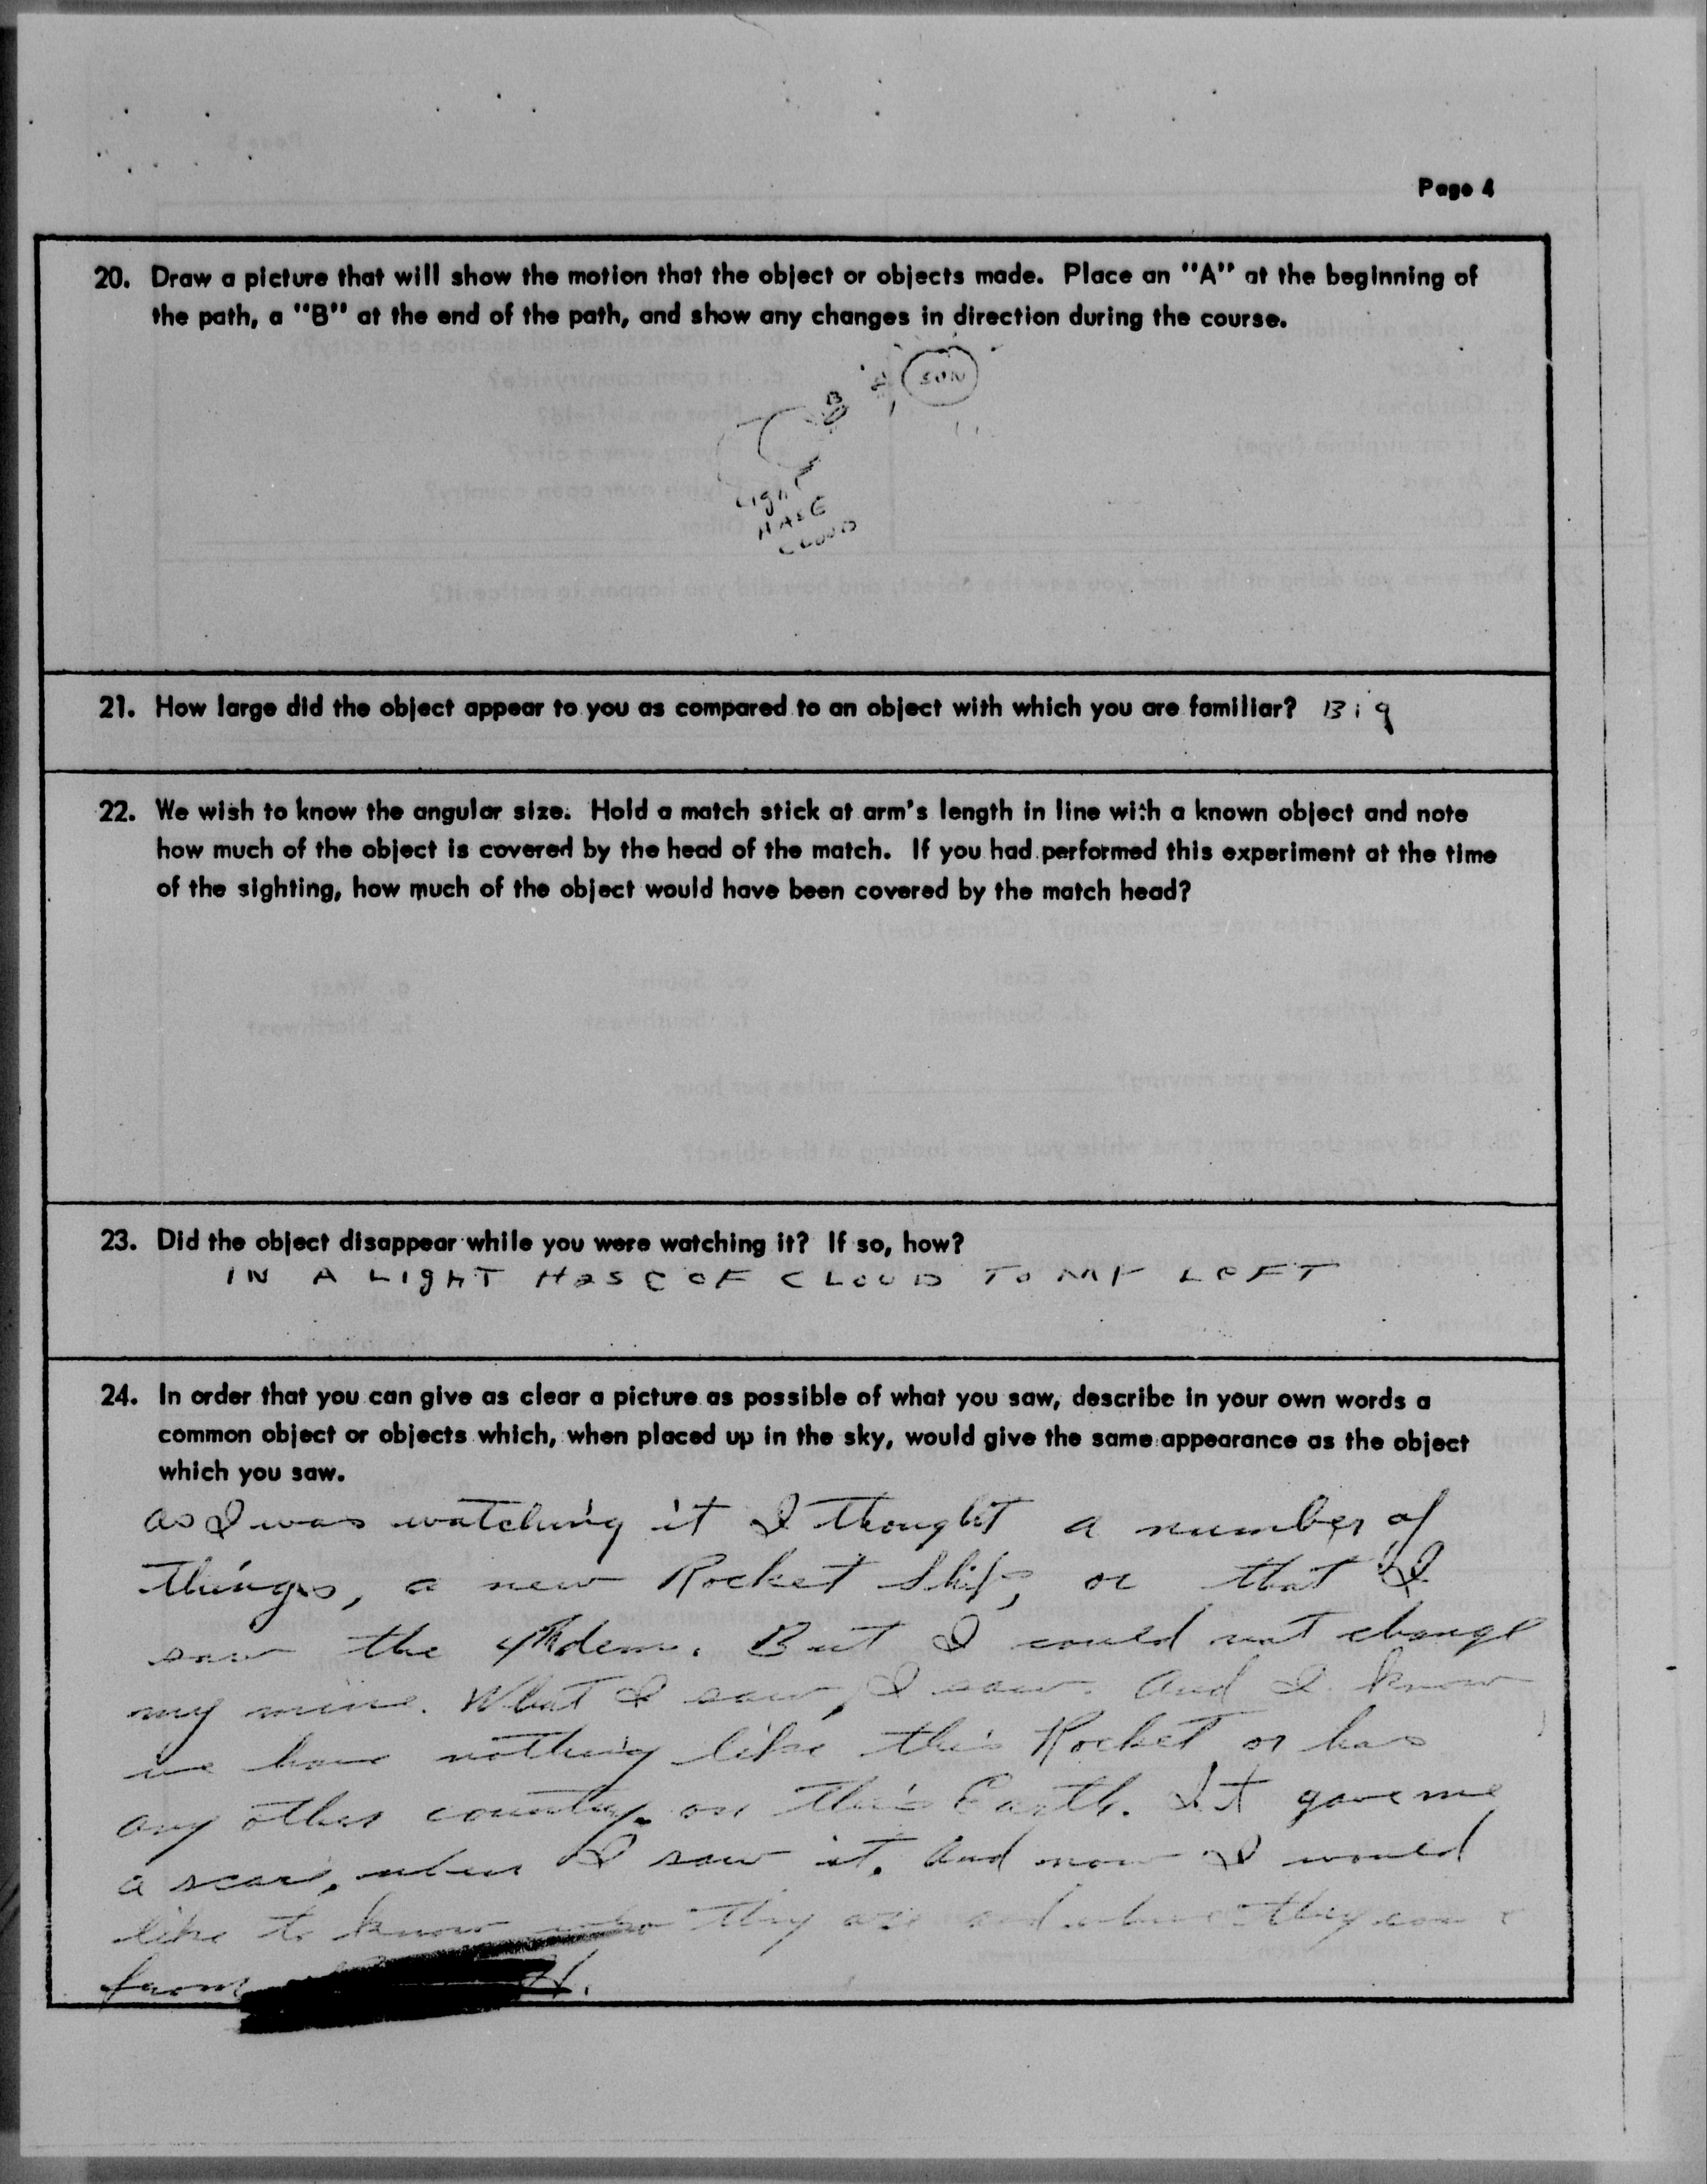 Page 4
20. Draw a picture that will show the motion that the object or objects made. Place an "A" at the beginning of
the path, a "B" at the end of the path, and show any changes in direction during the course.
SUN
A
B
Light
HASE
CLOUD
21. How large did the object appear to you as compared to an object with which you are familiar? Big
22. We wish to know the angular size. Hold a match stick at arm's length in line with a known object and note
how much of the object is covered by the head of the match. If you had performed this experiment at the time
of the sighting, how much of the object would have been covered by the match head?
23. Did the object disappear while you were watching it? If so, how?
IN A LIGHT HASE OF CLOUD TO MY LEFT
24. In order that you can give as clear a picture as possible of what you saw, describe in your own words a
common object or objects which, when placed up in the sky, would give the same appearance as the object
which you saw.
as I was watching it I thought a number of
things, a new Rocket Ship, or that I
saw the 4th dem. But I could not change
my mine. What I saw, I saw. And I know
we have nothing like this Rocket or has
any other country on this Earth. It gave me
a scare, when I saw it. And now I would
like to know who they are and where they come
from